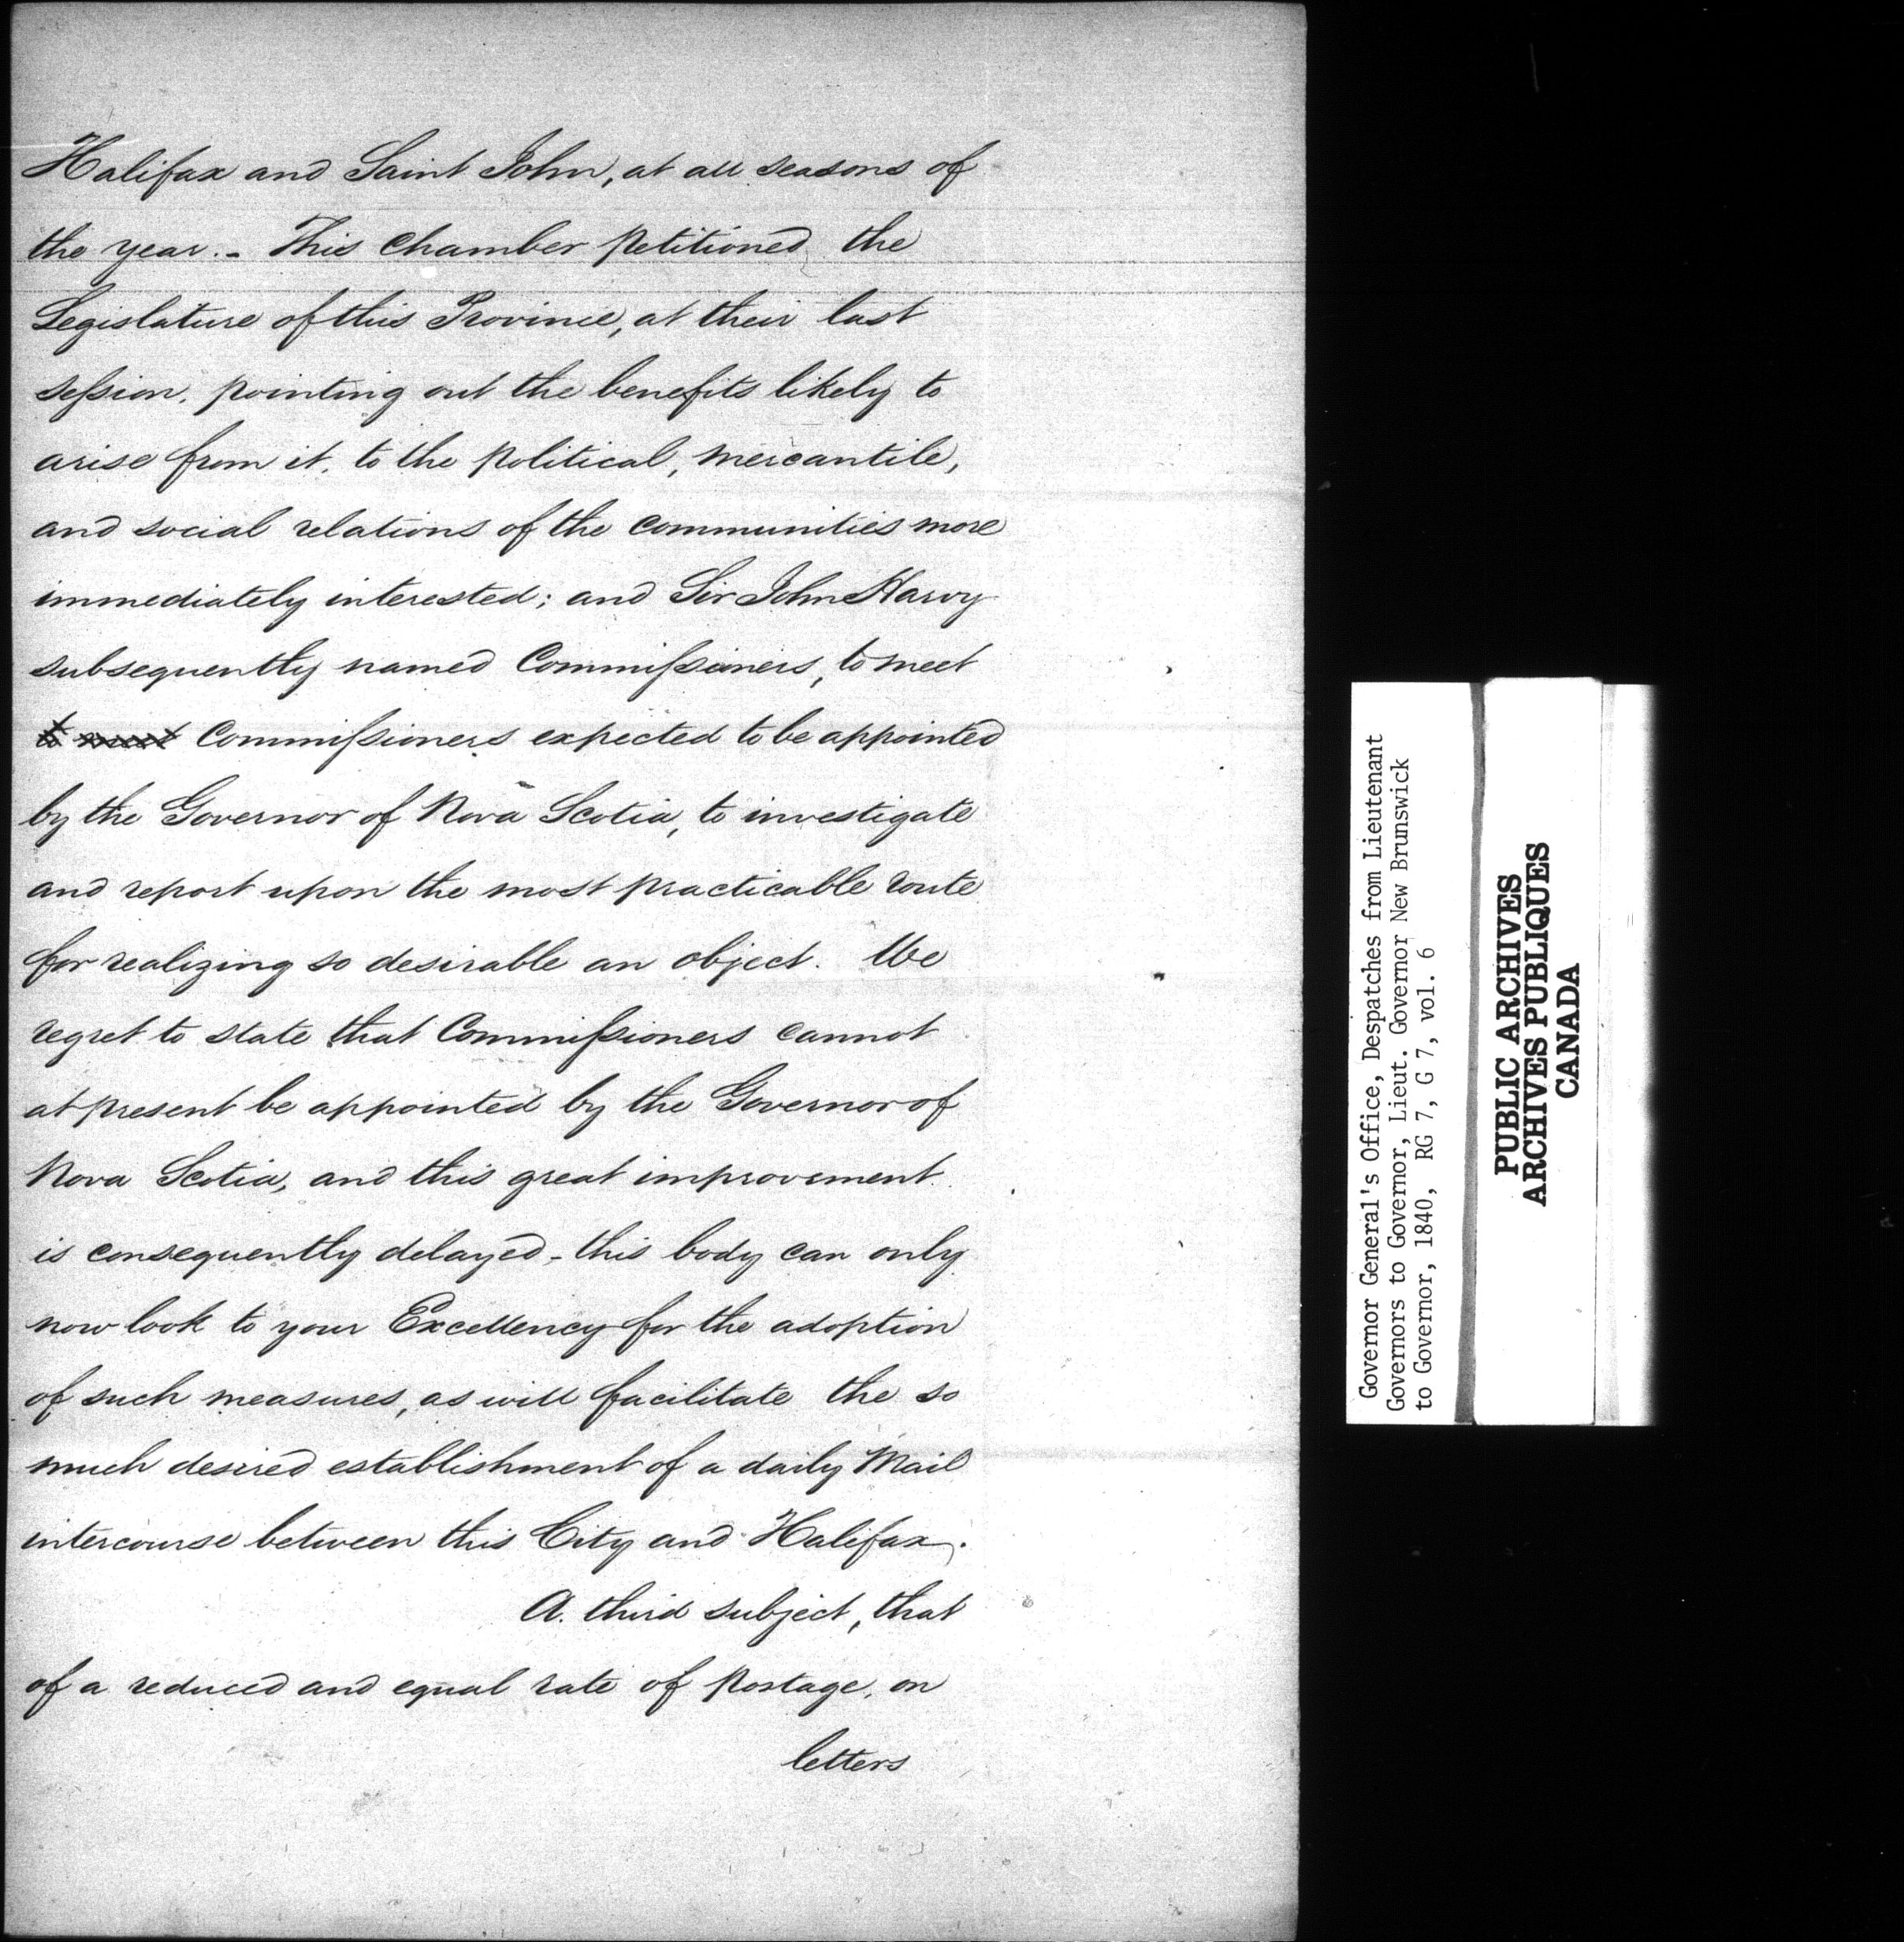 Halifax and Saint John, at all seasons of
the year. - This Chamber petitioned the
Legislature of this Province, at their last
session, pointing out the benefits likely to
arise from it, to the political, mercantile,
and social relations of the Communities more
immediately interested; and Sir John Harvy
subsequently named Commissioners, to meet
to meet Commissioners expected to be appointed
by the Governor of Nova Scotia, to investigate
and report upon the most practicable route
for realizing so desirable an object. We
regret to state that Commissioners cannot
at present be appointed by the Governor of
Nova Scotia, and this great improvement
is consequently delayed, - this body can only
now look to your Excellency for the adoption
of such measures, as will facilitate the so
much desired establishment of a daily Mail
intercourse between this City and Halifax.
A. third subject, that
of a reduced and equal rate of postage, on
letters
Governor General's Office, Despatches from Lieutenant
Governors to Governor, Lieut. Governor New Brunswick
to Governor, 1840, RG 7, G 7, vol. 6
PUBLIC ARCHIVES
ARCHIVES PUBLIQUES
CANADA